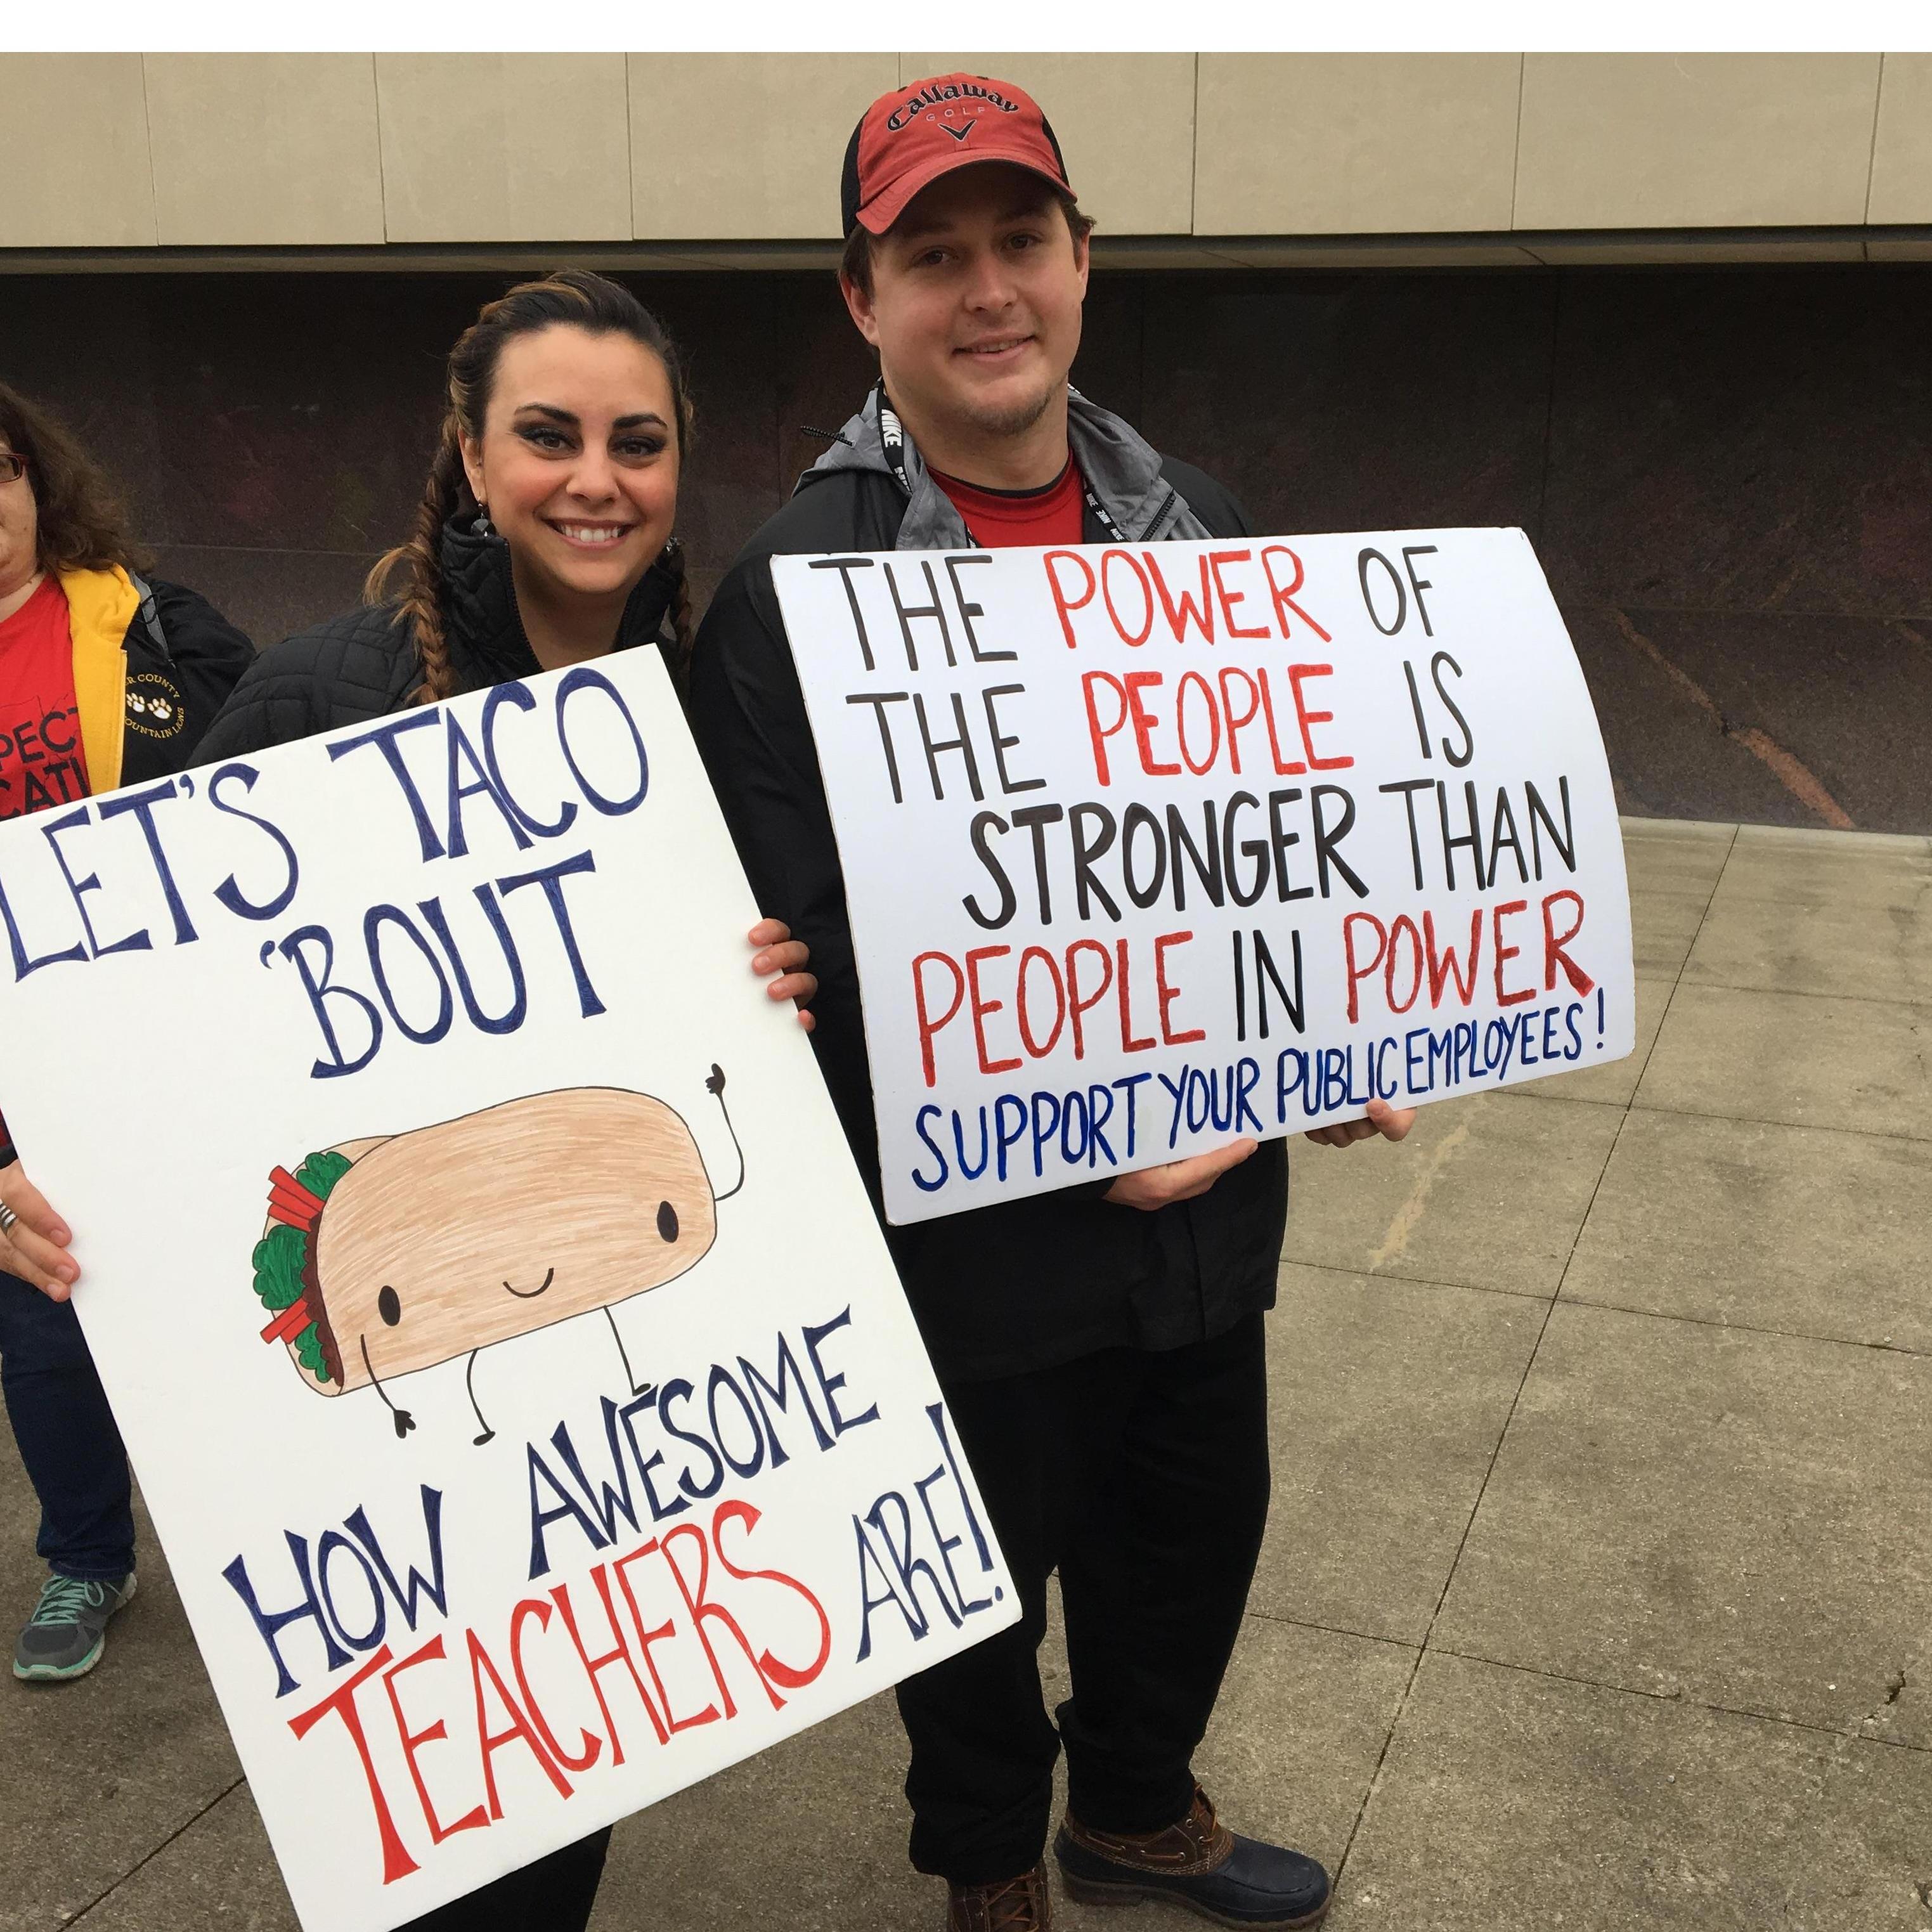 Callaway
GOLF
NIKE
R COUNTY
OUNTAIN LIONS
PEC
CATI
LET'S TACO
'BOUT
HOW AWESOME
TEACHERS ARE!
THE POWER OF
THE PEOPLE IS
STRONGER THAN
PEOPLE IN POWER
SUPPORT YOUR PUBLIC EMPLOYEES!